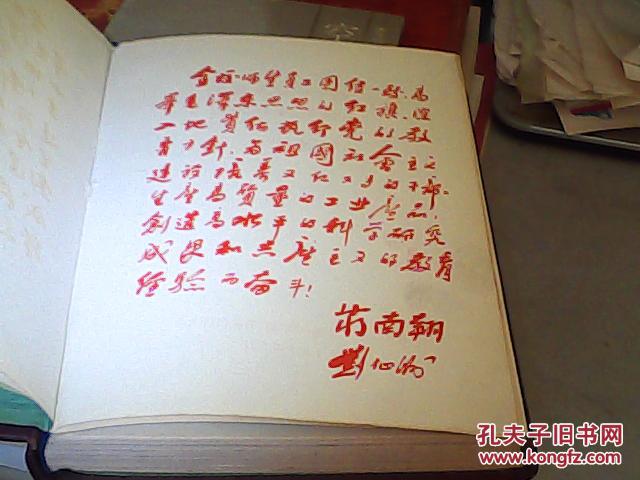 全校师生员工团结一致，高
举毛泽东思想的红旗，坚
工地贯彻执行党的教
育方针，为祖国社会主义
建设培养又红又专的干部，
生产高质量的工业产品，
创造高水平的科学研究
成果和共产主义的教育
经验而奋斗！
蒋南翔
刘仙洲
孔夫子旧书网
KONGFZ.COM